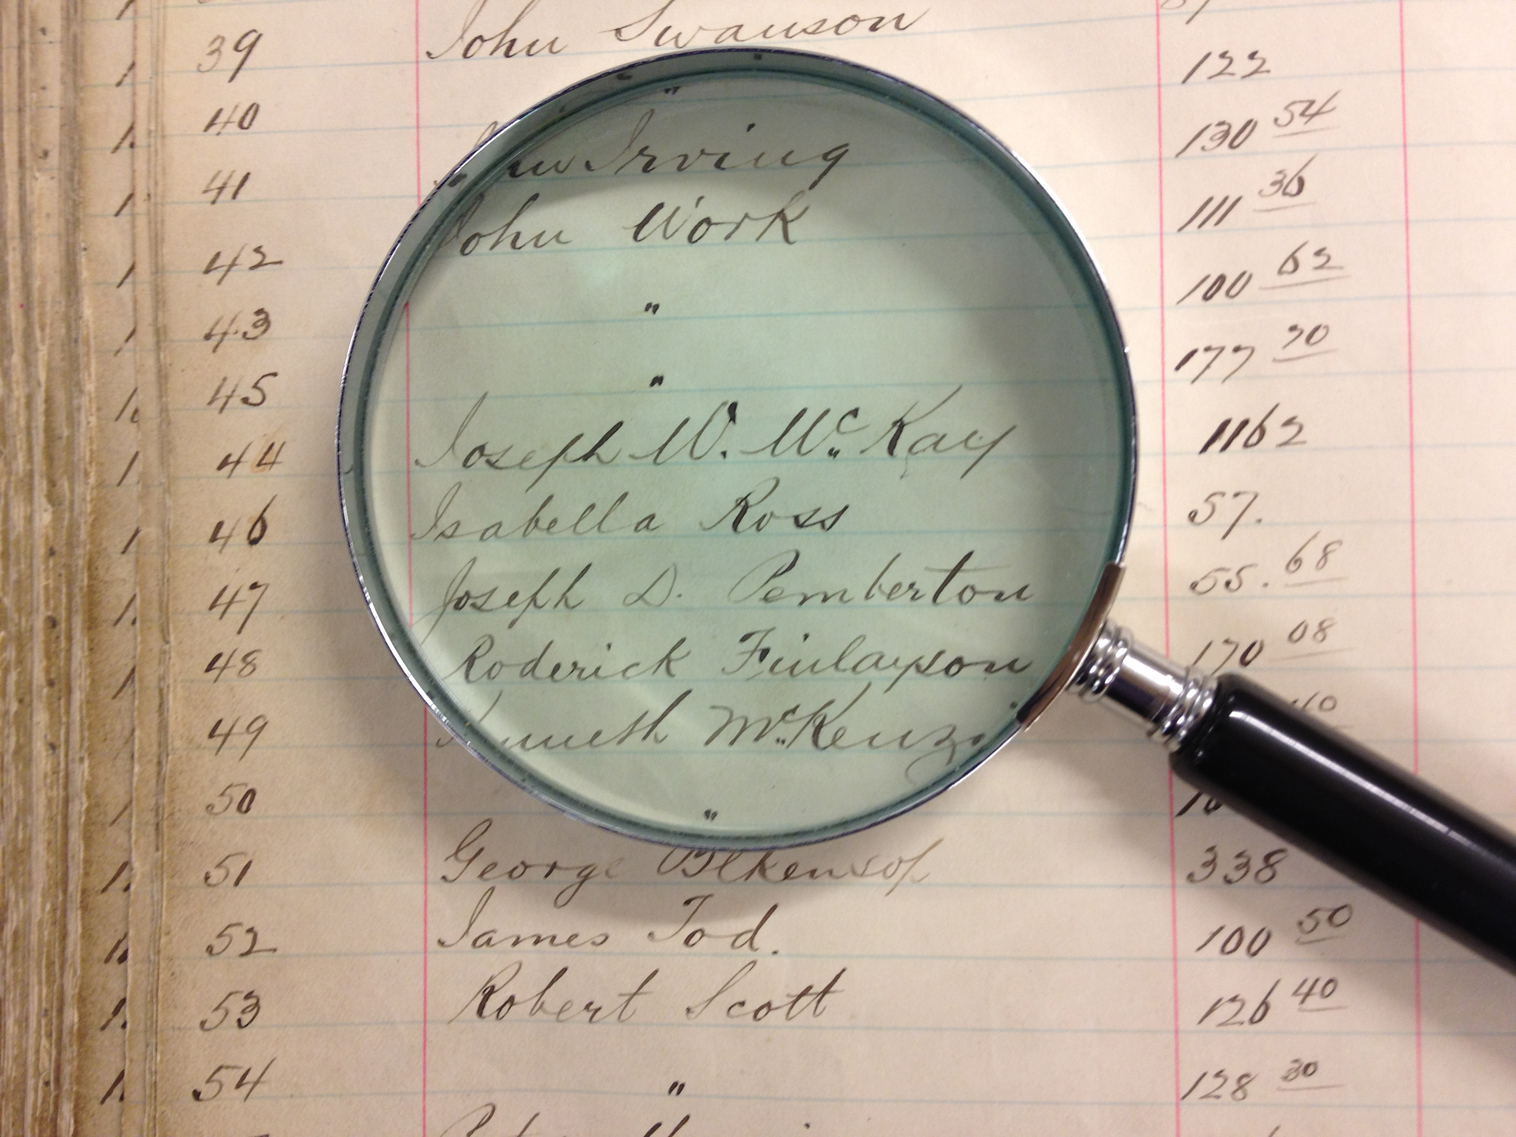 39 John Swanson
40 " 122
41 Irving 130 54
42 John Work 111 36
43 " 100 62
45 " 177 70
44 Joseph W. Mc Kay 1162
46 Isabella Ross 57.
47 Joseph D. Pemberton 55. 68
48 Roderick Finlayson 170 08
49 McKenzi 40
50 "
51 George Blkensop 338
52 James Tod. 100 50
53 Robert Scott 126 40
54 " 128 30